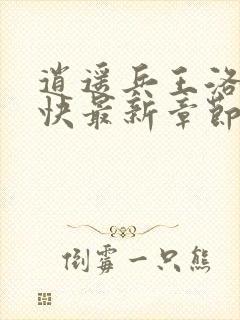 逍遥兵王洛
快最新章節
倒霉一只熊